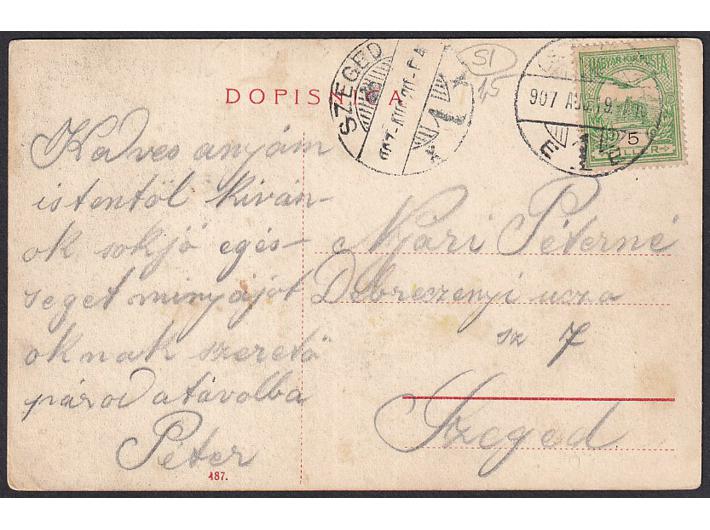 DOPISNICA
SZEGED
907 AUG 19
MAGYAR KIR. POSTA
5
S1
1,5
Kedves anyám
istentöl kiván-
ok sokjó egés-
seget minyájot
oknak szeretö
párod atávolba
Péter
187.
Njári Péterné
Debreszenyi uza
sz 7
Szeged